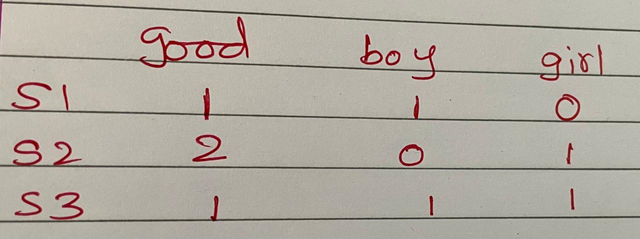 good boy girl
S1 1 1 0
S2 2 0 1
S3 1 1 1